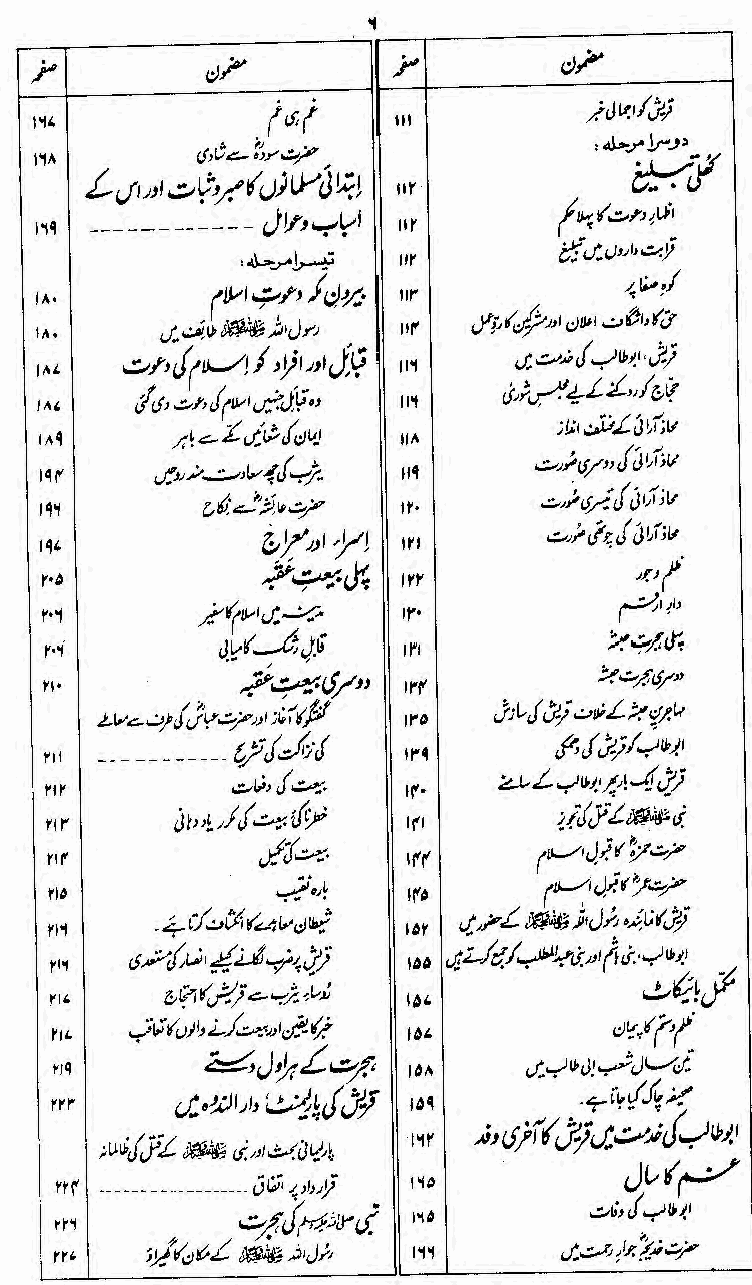 ۶
مضمون صفحہ
قریش کو اجمالی خبر ۱۱۱
دوسرا مرحلہ :
کھلی تبلیغ ۱۱۲
اظہارِ دعوت کا پہلا حکم ۱۱۲
قرابت داروں میں تبلیغ ۱۱۲
کوہِ صفا پر ۱۱۳
حق کا واشگاف اعلان اور مشرکین کا ردِّ عمل ۱۱۴
قریش، ابو طالب کی خدمت میں ۱۱۶
حجاج کو روکنے کے لیے مجلسِ شوریٰ ۱۱۶
محاذ آرائی کے مختلف انداز ۱۱۸
محاذ آرائی کی دوسری صُورت ۱۱۹
محاذ آرائی کی تیسری صُورت ۱۲۰
محاذ آرائی کی چوتھی صُورت ۱۲۱
ظلم وجور ۱۲۲
دارِ ارقم ۱۳۰
پہلی ہجرتِ حبشہ ۱۳۱
دوسری ہجرت حبشہ ۱۳۴
مہاجرینِ حبشہ کے خلاف قریش کی سازش ۱۳۵
ابوطالب کو قریش کی دھمکی ۱۳۹
قریش ایک بار پھر ابوطالب کے سامنے ۱۴۰
نبی ﷺ کے قتل کی تجویز ۱۴۱
حضرت حمزہؓ کا قبولِ اسلام ۱۴۴
حضرت عمرؓ کا قبولِ اسلام ۱۴۵
قریش کا نمائندہ رسُول اللہ ﷺ کے حضور میں ۱۵۲
ابوطالب، بنی ہاشم اور بنی عبدالمطلب کو جمع کرتے ہیں ۱۵۵
مکمّل بائیکاٹ ۱۵۷
ظلم وستم کا پیمان ۱۵۷
تین سال شعب ابی طالب میں ۱۵۸
صحیفہ چاک کیا جاتا ہے۔ ۱۵۹
ابوطالب کی خدمت میں قریش کا آخری وفد ۱۶۲
غم کا سال ۱۶۵
ابوطالب کی وفات ۱۶۵
حضرت خدیجہؓ جوارِ رحمت میں ۱۶۶
مضمون صفحہ
غم ہی غم ۱۶۷
حضرت سودہؓ سے شادی ۱۶۸
اِبتدائی مسلمانوں کا صبر و ثبات اور اس کے
اسباب وعوامل ------------ ۱۶۹
تیسرا مرحلہ :
بیرونِ مکہ دعوتِ اسلام ۱۸۰
رسول اللہ ﷺ طائف میں ۱۸۰
قبائل اور افراد کو اِسلام کی دعوت ۱۸۷
وہ قبائل جنہیں اسلام کی دعوت دی گئی ۱۸۷
ایمان کی شعائیں مکے سے باہر ۱۸۹
یثرب کی چھ سعادت مند روحیں ۱۹۴
حضرت عائشہؓ سے نکاح ۱۹۶
اِسراء اور معراج ۱۹۷
پہلی بیعتِ عَقَبہ ۲۰۵
مدینہ میں اسلام کا سفیر ۲۰۶
قابلِ رشک کامیابی ۲۰۶
دوسری بیعتِ عَقَبہ ۲۱۰
گفتگو کا آغاز اور حضرت عباسؓ کی طرف سے معاملے
کی نزاکت کی تشریح ------------ ۲۱۱
بیعت کی دفعات ۲۱۲
خطرناکیٔ بیعت کی مکرر یاد دہانی ۲۱۳
بیعت کی تکمیل ۲۱۴
بارہ نقیب ۲۱۵
شیطان معاہدے کا انکشاف کرتا ہے۔ ۲۱۶
قریش پر ضرب لگانے کیلیے انصار کی مستعدی ۲۱۶
رُوساءِ یثرب سے قریش کا احتجاج ۲۱۷
خبر کا یقین اور بیعت کرنے والوں کا تعاقب ۲۱۷
ہجرت کے ہراول دستے ۲۱۹
قریش کی پارلیمنٹ؛ دار الندوہ میں ۲۲۳
پارلیمانی بحث اور نبی ﷺ کے قتل کی ظالمانہ
قرارداد پر اتفاق ------------ ۲۲۴
نبی صلی اللہ علیہ وسلم کی ہجرت ۲۲۶
رسُول اللہ ﷺ کے مکان کا گھیراؤ ۲۲۷